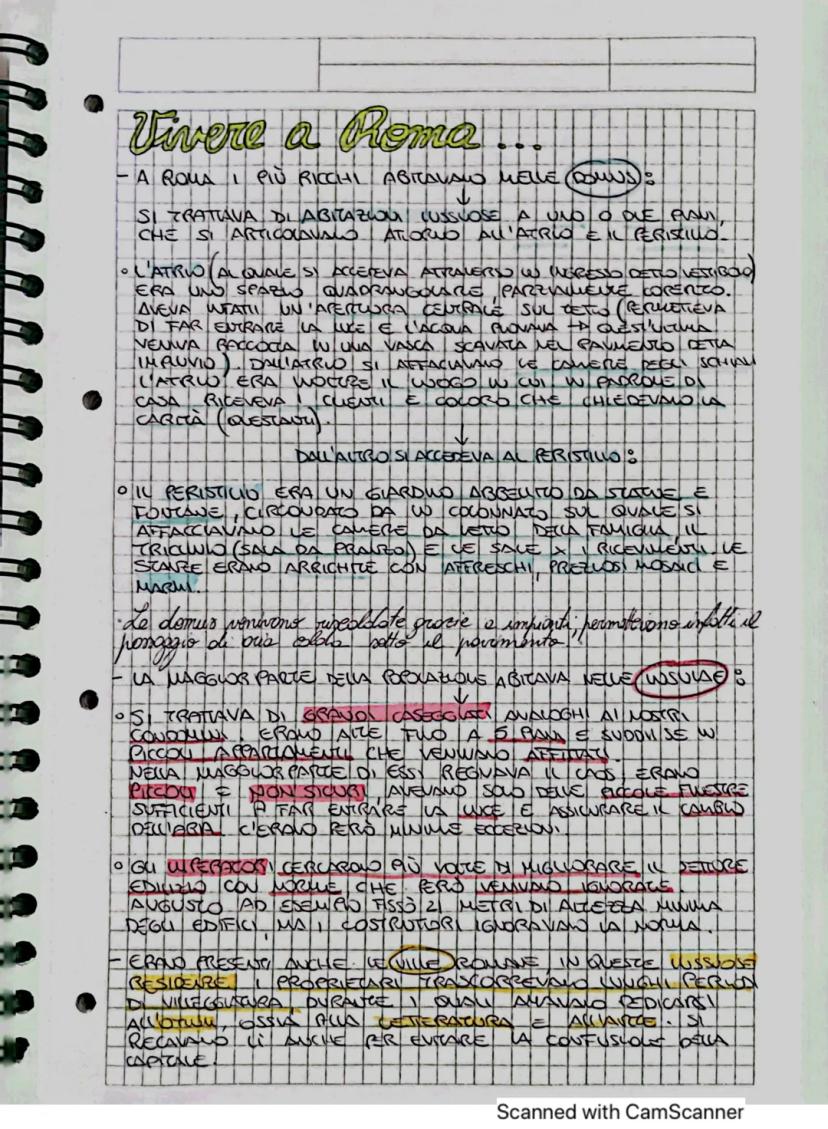 Vivere a Roma...
- A ROMA I PIÙ RICCHI ABITAVANO NELLE DOMUS:
↓
SI TRATTAVA DI ABITAZIONI LUSSUOSE A UNO O DUE PIANI,
CHE SI ARTICOLAVANO ATTORNO ALL'ATRIO E IL PERISTILIO.
° L'ATRIO (AL QUALE SI ACCEDEVA ATTRAVERSO UN INGRESSO DETTO VESTIBOLO)
ERA UNO SPAZIO QUADRANGOLARE, PARZIALMENTE COPERTO.
AVEVA INFATTI UN'APERTURA CENTRALE SUL TETTO (PERMETTEVA
DI FAR ENTRARE LA LUCE E L'ACQUA PIOVANA → QUEST'ULTIMA
VENIVA RACCOLTA IN UNA VASCA SCAVATA NEL PAVIMENTO DETTA
IMPLUVIO). DALL'ATRIO SI AFFACIAVANO LE CAMERE DEGLI SCHIAVI
L'ATRIO ERA INOLTRE IL LUOGO IN CUI IN PADRONE DI
CASA RICEVEVA I CLIENTI E COLORO CHE CHIEDEVANO LA
CARITÀ (QUESTANTI).
↓
DALL'ALTRO SI ACCEDEVA AL PERISTILIO:
° IL PERISTILIO ERA UN GIARDINO ABBELLITO DA STATUE E
FONTANE, CIRCONDATO DA UN COLONNATO SUL QUALE SI
AFFACCIAVANO LE CAMERE DA LETTO DELLA FAMIGLIA, IL
TRICLINIO (SALA DA PRANZO) E LE SALE X I RICEVIMENTI. LE
STANZE ERANO ARRICHITE CON AFFRESCHI, PREZIOSI MOSAICI E
MARMI.
Le domus venivano riscaldate grazie a impianti, permettevano infatti il
passaggio di aria calda sotto il pavimento.
- LA MAGGIOR PARTE DELLA POPOLAZIONE ABITAVA NELLE INSULAE:
↓
° SI TRATTAVA DI GRANDI CASEGGIATI ANALOGHI AI NOSTRI
CONDOMINI. ERANO ALTE FINO A 5 PIANI E SUDDIVISE IN
PICCOLI APPARTAMENTI CHE VENIVANO AFFITTATI.
NELLA MAGGIOR PARTE DI ESSI REGNAVA IL CAOS, ERANO
PICCOLI E NON SICURI, AVEVANO SOLO DELLE PICCOLE FINESTRE
SUFFICIENTI A FAR ENTRARE LA LUCE E ASSICURARE IL CAMBIO
DELL'ARIA. C'ERANO PERÒ MINIME ECCEZIONI.
° GLI IMPERATORI CERCARONO PIÙ VOLTE DI MIGLIORARE IL SETTORE
EDILIZIO CON NORME CHE PERÒ VENIVANO IGNORATE
AUGUSTO AD ESEMPIO FISSÒ 21 METRI DI ALTEZZA MINIMA
DEGLI EDIFICI, MA I COSTRUTTORI IGNORAVANO LA NORMA.
- ERANO PRESENTI ANCHE LE VILLE ROMANE, IN QUESTE LUSSUOSE
RESIDENZE I PROPRIETARI TRASCORREVANO LUNGHI PERIODI
DI VILLEGGIATURA, DURANTE I QUALI AMAVANO DEDICARSI
ALL'OTIUM, OSSIA ALLA LETTERATURA E ALL'ARTE. SI
RECAVANO LÌ ANCHE PER EVITARE LA CONFUSIONE DELLA
CAPITALE.
Scanned with CamScanner